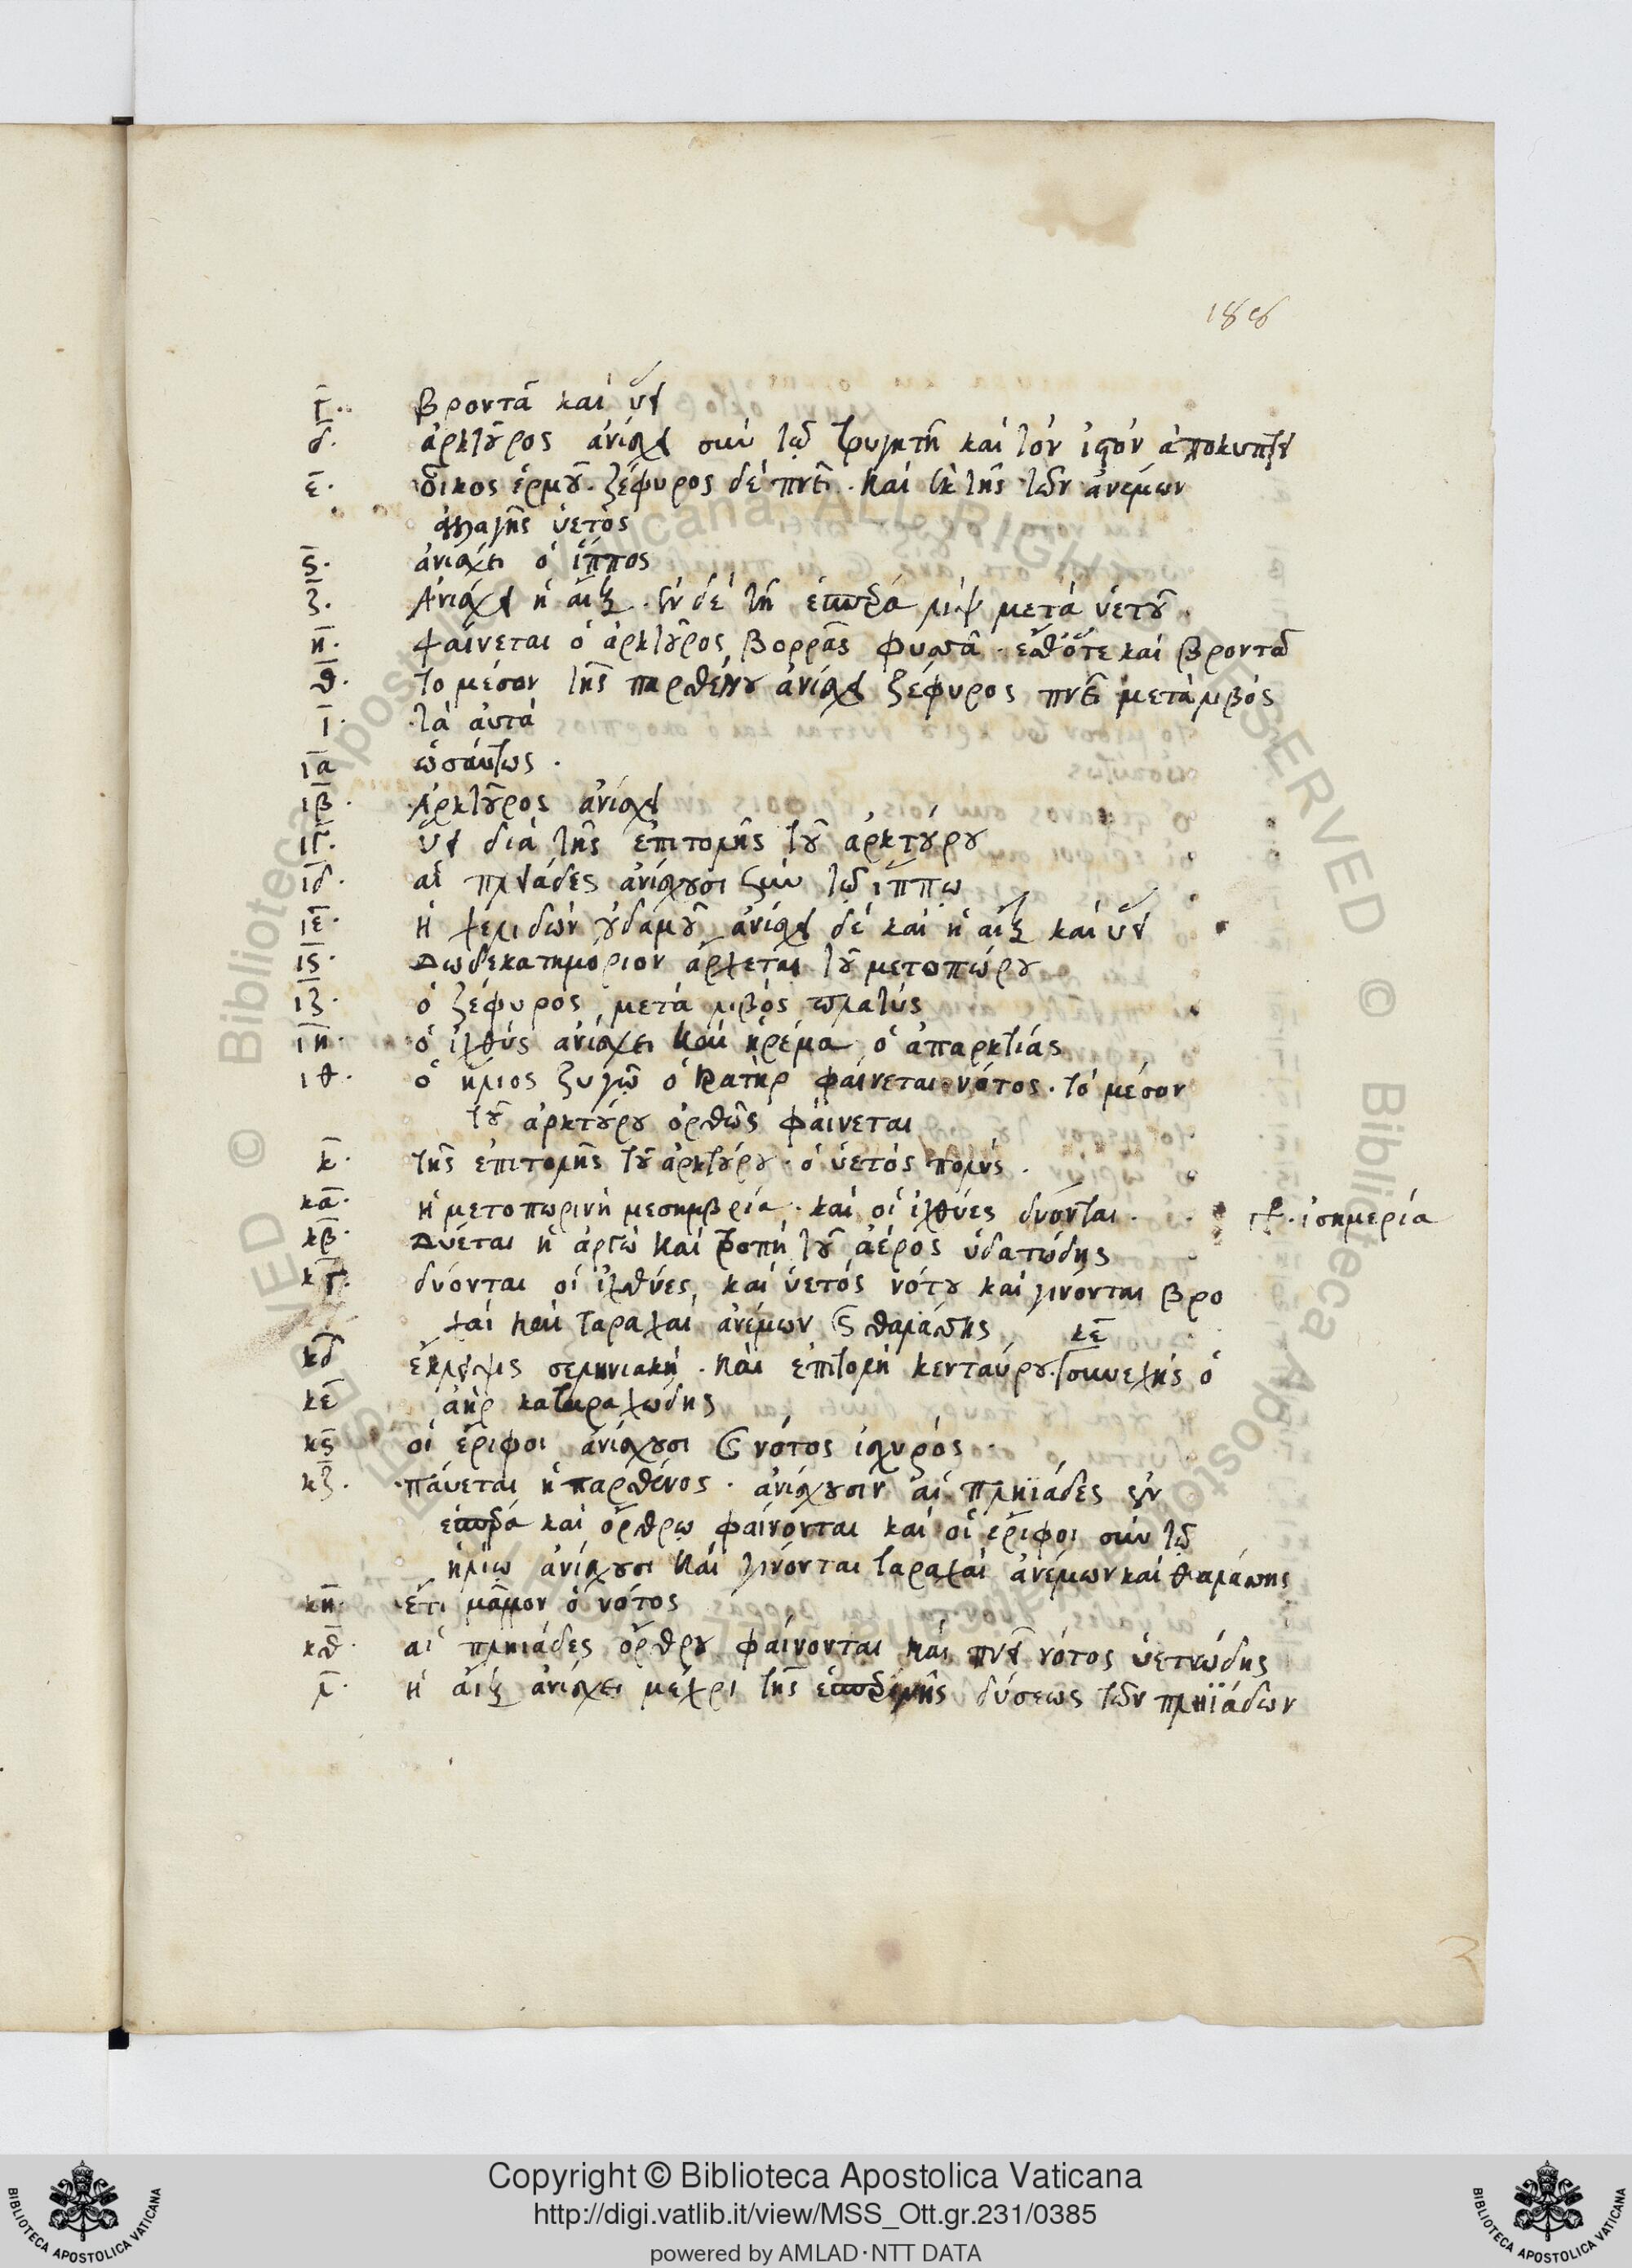 186
γ. βροντᾶ καὶ ὕει
δ. ἀρκτοῦρος ἀνίσχει σὺν τῷ τρυγητῇ καὶ τὸν ἱστὸν ἀποκύπτει
ε. οἶκος ἑρμοῦ. ζέφυρος δὲ πνεῖ. καὶ ἐκ τῆς τῶν ἀνέμων
ἀλλαγῆς ὑετός
ς. ἀνίσχει ὁ ἵππος
ζ. Ἀνίσχει ἡ αἴξ. ἐν δὲ τῇ ἑσπέρᾳ λὶψ μετὰ ὑετοῦ.
η. φαίνεται ὁ ἀρκτοῦρος βορρᾶς φυσᾶ. ἔσθ' ὅτε καὶ βροντᾶ
θ. τὸ μέσον τῆς παρθένου ἀνίσχει ζέφυρος πνεῖ μετὰ λιβός
ι. τὰ αὐτά
ια ὡσαύτως.
ιβ. Ἀρκτοῦρος ἀνίσχει
ιγ. ὕει διὰ τῆς ἐπιτολῆς τοῦ ἀρκτούρου
ιδ. αἱ πλειάδες ἀνίσχουσι σὺν τῷ ἵππῳ
ιε. ἡ χελιδὼν οὐδαμοῦ ἀνίσχει δὲ καὶ ἡ αἲξ καὶ ὕει
ις. Δωδεκατημόριον ἄρχεται τοῦ μετοπώρου
ιζ. ὁ ζέφυρος μετὰ λιβὸς πλατύς
ιη. ὁ ἰχθὺς ἀνίσχει καὶ ἠρέμα ὁ ἀπαρκτίας
ιθ. ὁ ἥλιος ζυγῷ ὁ κρατὴρ φαίνεται νότος. τὸ μέσον
τοῦ ἀρκτούρου ὀρθῶς φαίνεται
κ. τῆς ἐπιτολῆς τοῦ ἀρκτούρου. ὁ ὑετὸς πολύς.
κα. ἡ μετοπωρινὴ μεσημβρία. καὶ οἱ ἰχθύες δύονται. ἰσημερία
κβ. Δύεται ἡ ἀργὼ καὶ τροπὴ τοῦ ἀέρος ὑδατώδης
κγ. δύονται οἱ ἰχθύες, καὶ ὑετὸς νότου καὶ γίνονται βρο
χαὶ καὶ ταραχαὶ ἀνέμων καὶ θαλάσσης κε
κδ ἔκλειψις σεληνιακή. καὶ ἐπιτολὴ κενταύρου. συνεχὴς ὁ
κε ἀὴρ καὶ ταραχώδης
κς οἱ ἔριφοι ἀνίσχουσι καὶ νότος ἰσχυρός.
κζ. παύεται ἡ παρθένος. ἀνίσχουσιν αἱ πληϊάδες ἐν
ἑσπέρᾳ καὶ ὄρθρῳ φαίνονται καὶ οἱ ἔριφοι σὺν τῷ
ἡλίῳ ἀνίσχουσι καὶ γίνονται ταραχαὶ ἀνέμων καὶ θαλάσσης
κη. ἔτι μᾶλλον ὁ νότος
κθ. αἱ πληιάδες ὄρθρου φαίνονται καὶ πνεῖ νότος ὑετώδης
λ. ἡ αἲξ ἀνίσχει μέχρι τῆς ἑσπερινῆς δύσεως τῶν πληϊάδων
Copyright © Biblioteca Apostolica Vaticana
http://digi.vatlib.it/view/MSS_Ott.gr.231/0385
powered by AMLAD·NTT DATA